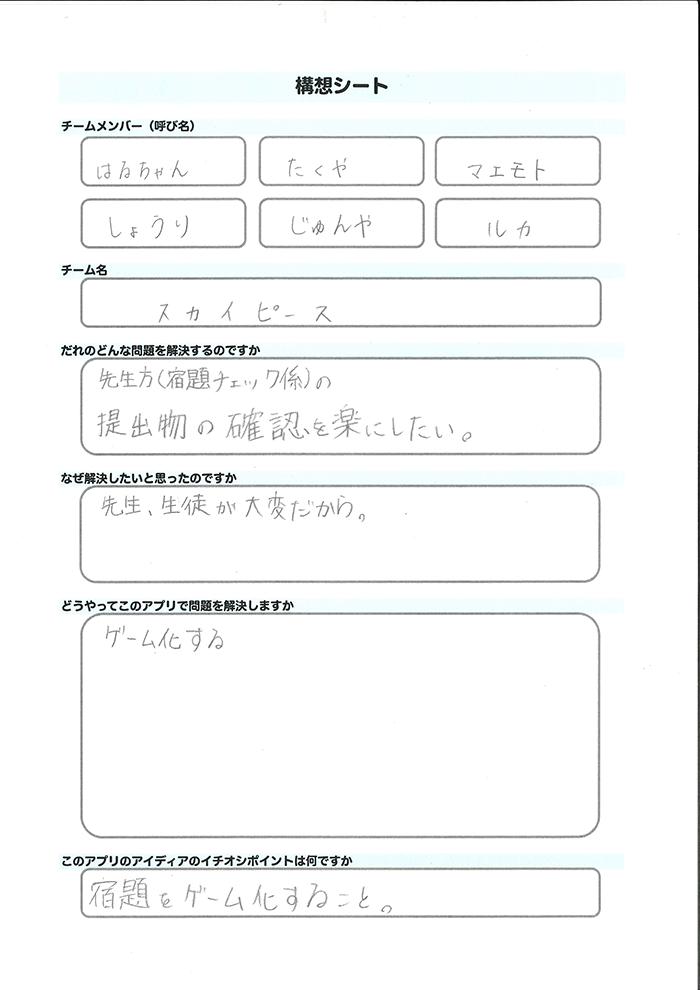 構想シート
チームメンバー（呼び名）
はるちゃん たくや マエモト
しょうり じゅんや ルカ
チーム名
スカイピース
だれのどんな問題を解決するのですか
先生方(宿題チェック係)の
提出物の確認を楽にしたい。
なぜ解決したいと思ったのですか
先生、生徒が大変だから。
どうやってこのアプリで問題を解決しますか
ゲーム化する
このアプリのアイディアのイチオシポイントは何ですか
宿題をゲーム化すること。